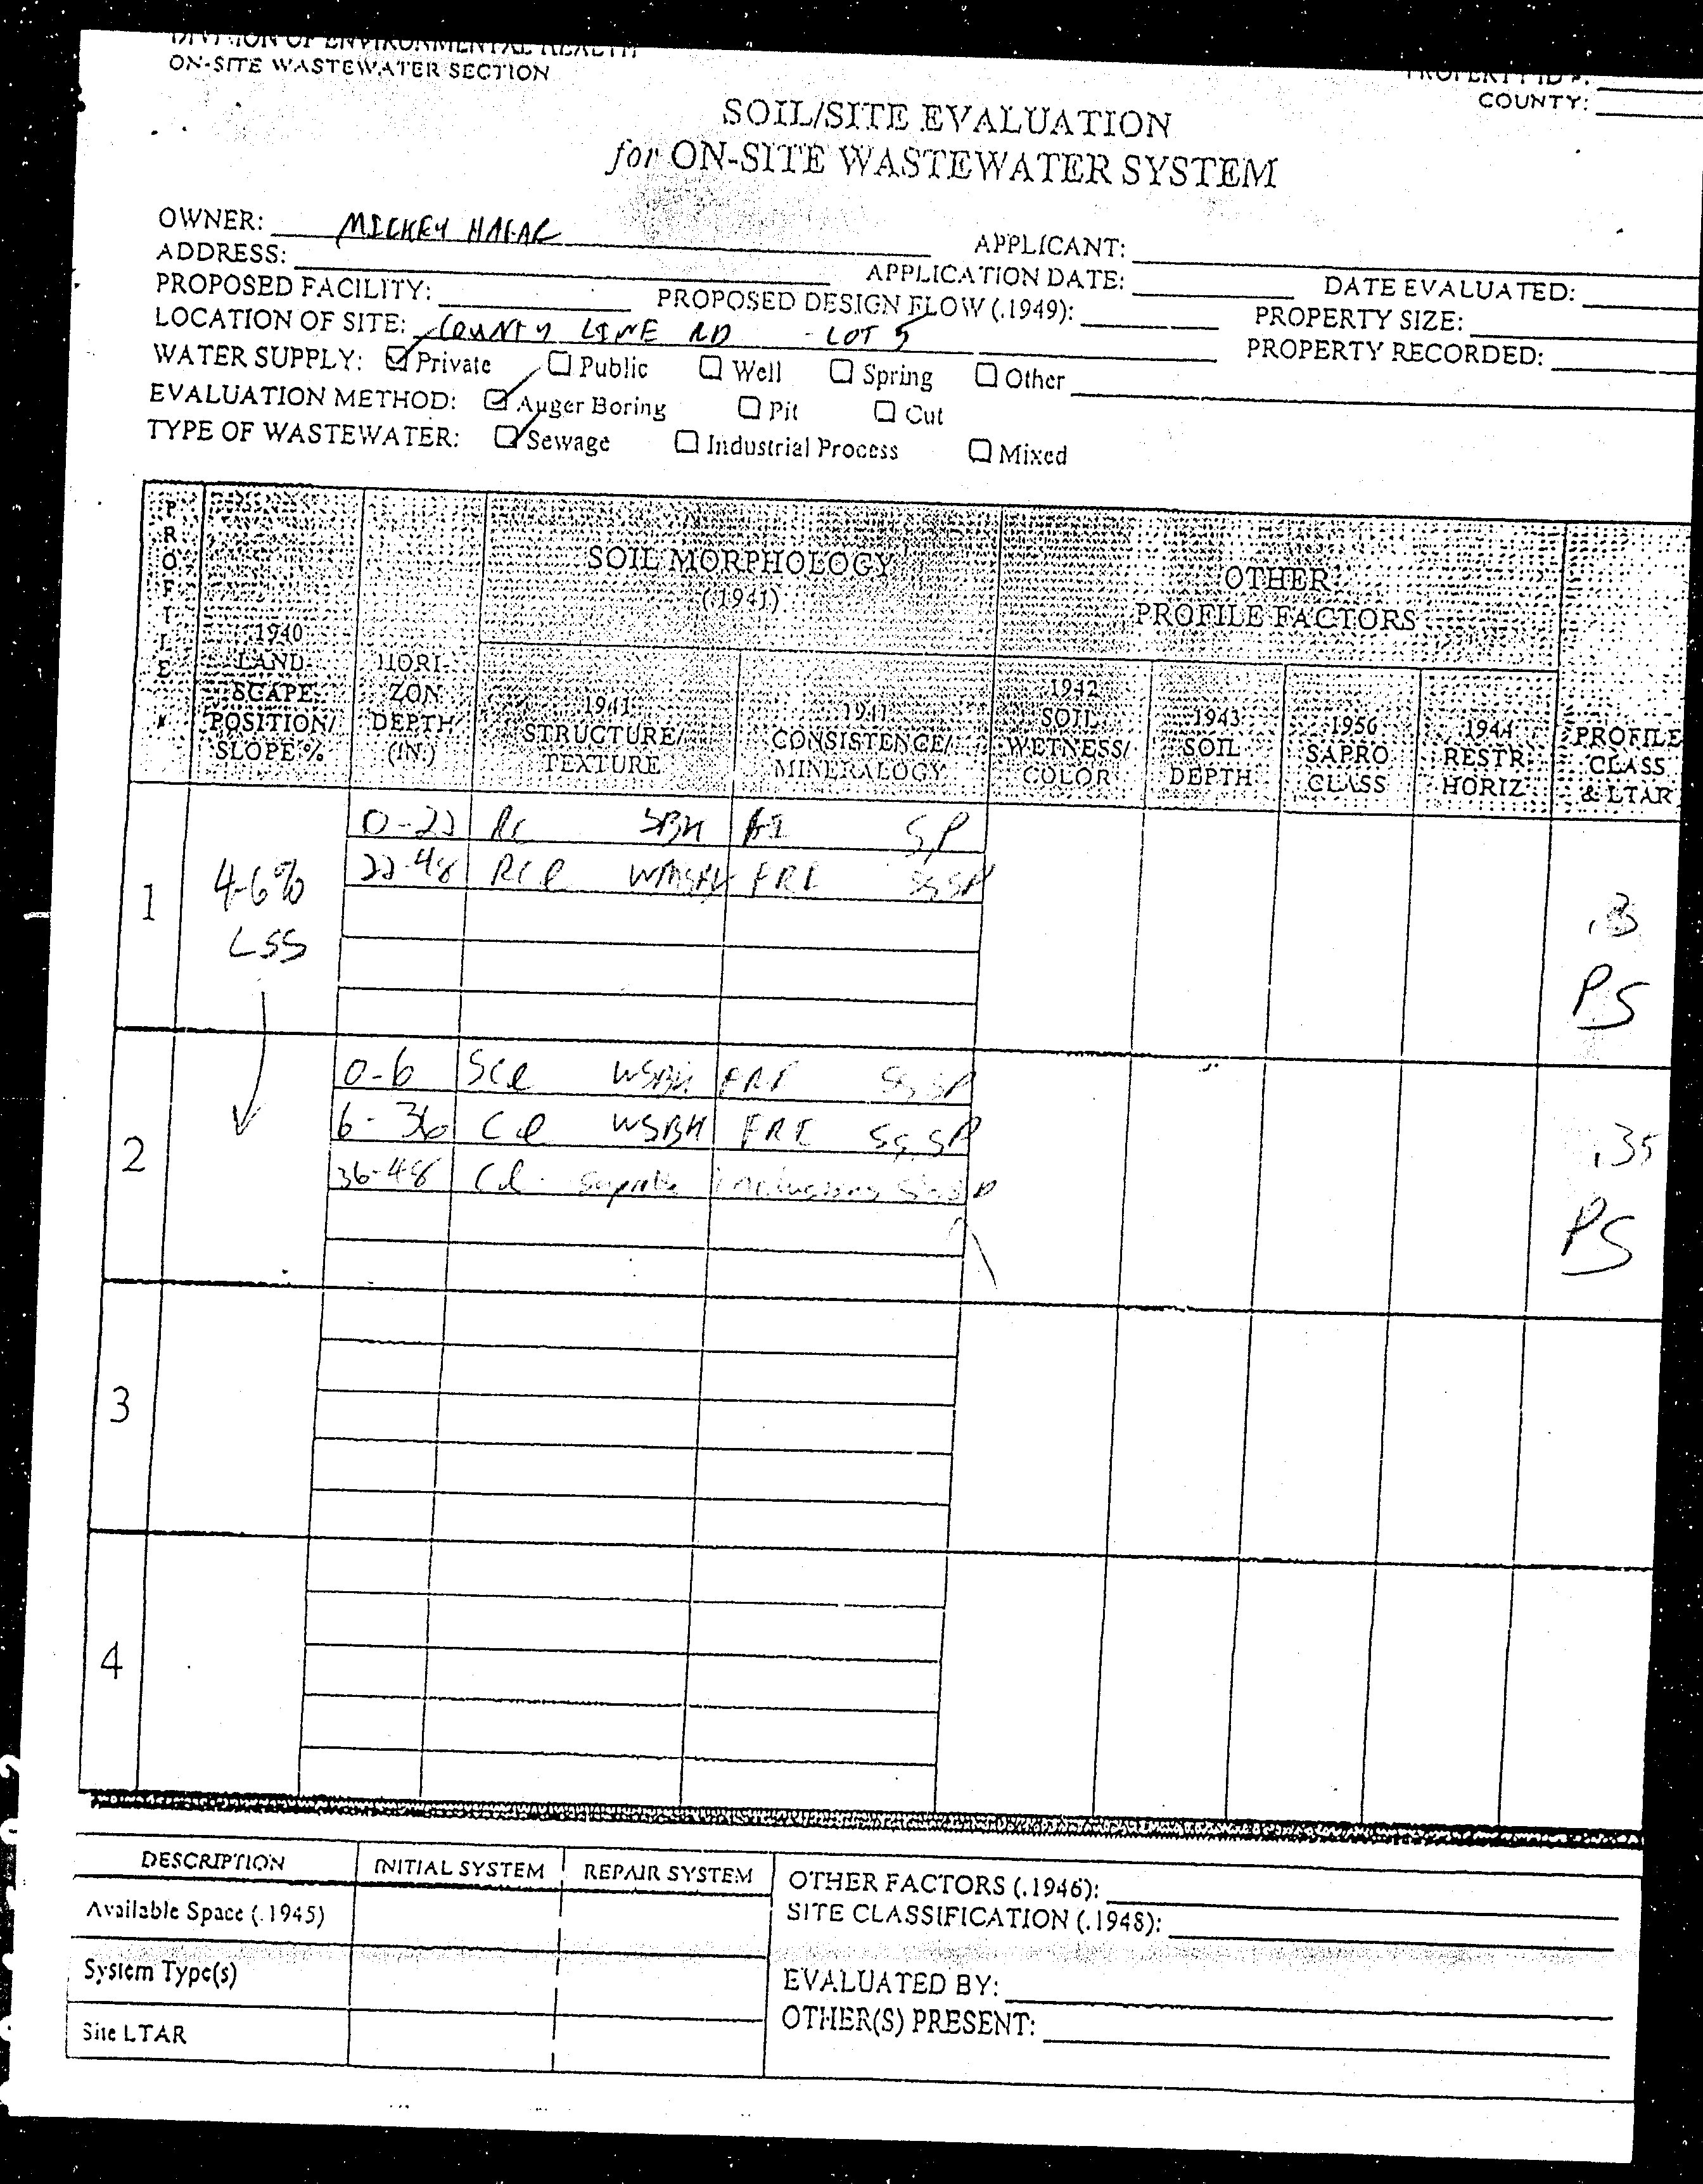 DIVISION OF ENVIRONMENTAL HEALTH
ON-SITE WASTEWATER SECTION
PROPERTY ID #:
COUNTY:
SOIL/SITE EVALUATION
for ON-SITE WASTEWATER SYSTEM
OWNER: MICKEY
APPLICANT:
ADDRESS:
APPLICATION DATE:
DATE EVALUATED:
PROPOSED FACILITY:
PROPOSED DESIGN FLOW (.1949):
PROPERTY SIZE:
LOCATION OF SITE: COUNTY LINE RD - LOT 5
PROPERTY RECORDED:
WATER SUPPLY: ☑ Private ☐ Public ☐ Well ☐ Spring ☐ Other
EVALUATION METHOD: ☑ Auger Boring ☐ Pit ☐ Cut
TYPE OF WASTEWATER: ☑ Sewage ☐ Industrial Process ☐ Mixed
PROFILE #
.1940 LAND-SCAPE POSITION/ SLOPE %
HORI-ZON DEPTH (IN.)
SOIL MORPHOLOGY (.1941)
.1941 STRUCTURE/ TEXTURE
.1941 CONSISTENCE/ MINERALOGY
OTHER PROFILE FACTORS
.1942 SOIL WETNESS/ COLOR
.1943 SOIL DEPTH
.1956 SAPRO CLASS
.1944 RESTR HORIZ
PROFILE CLASS & LTAR
1
4-6%
LSS
0-22 SBK SP
22-48 FRI SS, SP
.3
PS
2
0-6 SCL WSBK FRI SS, SP
6-36 CL WSBK FRI SS, SP
36-48 CL inclusions
.35
PS
3
4
DESCRIPTION INITIAL SYSTEM REPAIR SYSTEM
Available Space (.1945)
System Type(s)
Site LTAR
OTHER FACTORS (.1946):
SITE CLASSIFICATION (.1948):
EVALUATED BY:
OTHER(S) PRESENT: